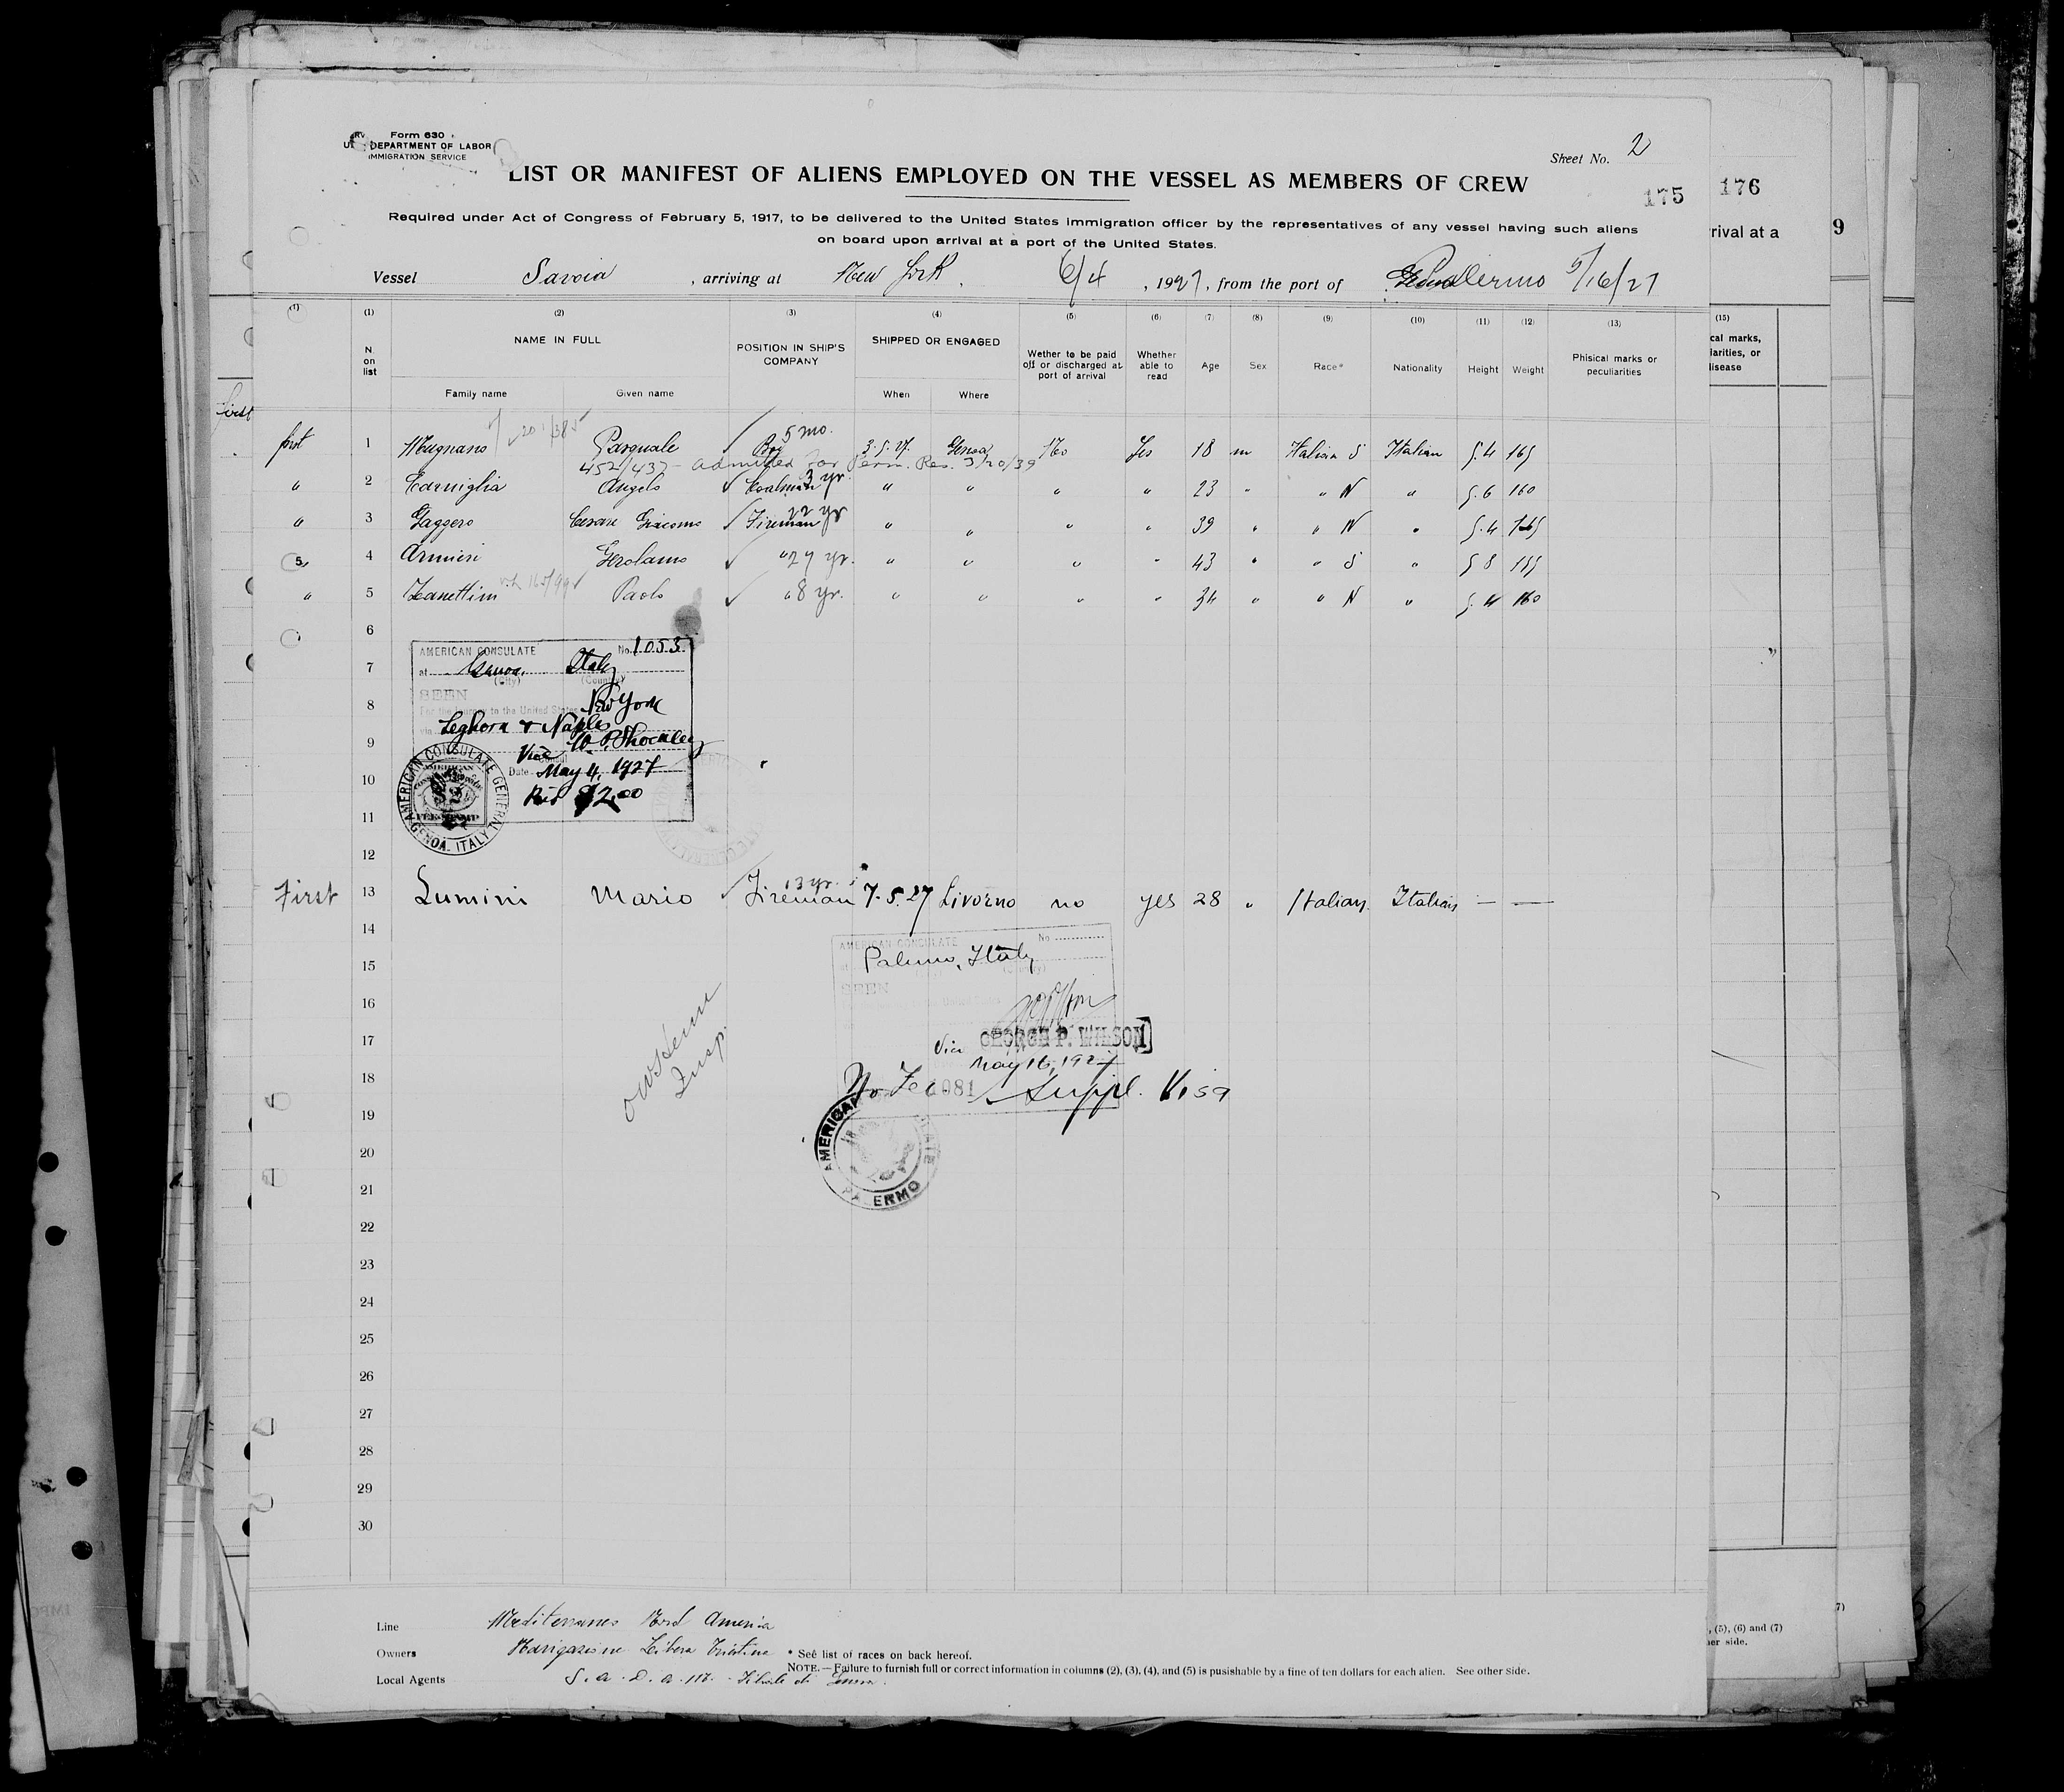 Form 630
DEPARTMENT OF LABOR
IMMIGRATION SERVICE
Sheet No. 2
LIST OR MANIFEST OF ALIENS EMPLOYED ON THE VESSEL AS MEMBERS OF CREW
175 176
Required under Act of Congress of February 5, 1917, to be delivered to the United States immigration officer by the representatives of any vessel having such aliens
on board upon arrival at a port of the United States.
rival at a
9
Vessel Savoia, arriving at New York. 6/4, 1927, from the port of Palermo 5/16/27
(1) (1) (2) (3) (4) (5) (6) (7) (8) (9) (10) (11) (12) (13) (15)
N on list
NAME IN FULL
Family name Given name
POSITION IN SHIP'S COMPANY
SHIPPED OR ENGAGED
When Where
Wether to be paid off or discharged at port of arrival
Whether able to read
Age Sex Race* Nationality Height Weight
Phisical marks or peculiarities
cal marks,
iarities, or
isease
first
first 1 Mugnano 201/385 Pasquale Boy 5 mo. 3.5.27. Genoa No Yes 18 m Italian S Italian 5.4 165
452/437 - admitted for Perm. Res. 3/20/39
" 2 Carniglia Angelo Coalman 3 yr. " " " " 23 " " N " 5.6 160
" 3 Gaggero Cesare Giacomo Fireman 22 yr " " " " 39 " " N " 5.4 165
5 4 Armieri Gerolamo " 27 yr. " " " " 43 " " S " 5 8 155
" 5 Zanettini Paolo " 8 yr. " " " " 34 " " N " 5.4 160
6
7
8
9
10
11
12
AMERICAN CONSULATE No. 1053
at Genoa, Italy
(City) (Country)
SEEN
For the journey to the United States New York
via Leghorn & Naples
Vice Consul W. P. Shockley
Date May 4, 1927
$2.00
AMERICAN CONSULATE GENERAL
GENOA. ITALY
AMERICAN
FEE STAMP
First 13 Lumini Mario Fireman 13 yr. 7.5.27 Livorno no yes 28 " Italian. Italian — —
14
15
16
17
18
19
20
21
22
23
24
25
26
27
28
29
30
AMERICAN CONSULATE No
Palermo, Italy
SEEN
GEORGE P. WILSON
Vice
May 16, 1927
No Fee 081 Suppl. Visa
AMERICAN
PALERMO
Insp.
Line Mediterraneo Nord America
Owners Navigazione Libera Triestina
Local Agents S. a. D. a. M. - Filiale di Genova.
* See list of races on back hereof.
NOTE.—Failure to furnish full or correct information in columns (2), (3), (4), and (5) is pusishable by a fine of ten dollars for each alien. See other side.
, (5), (6) and (7)
er side.
7)